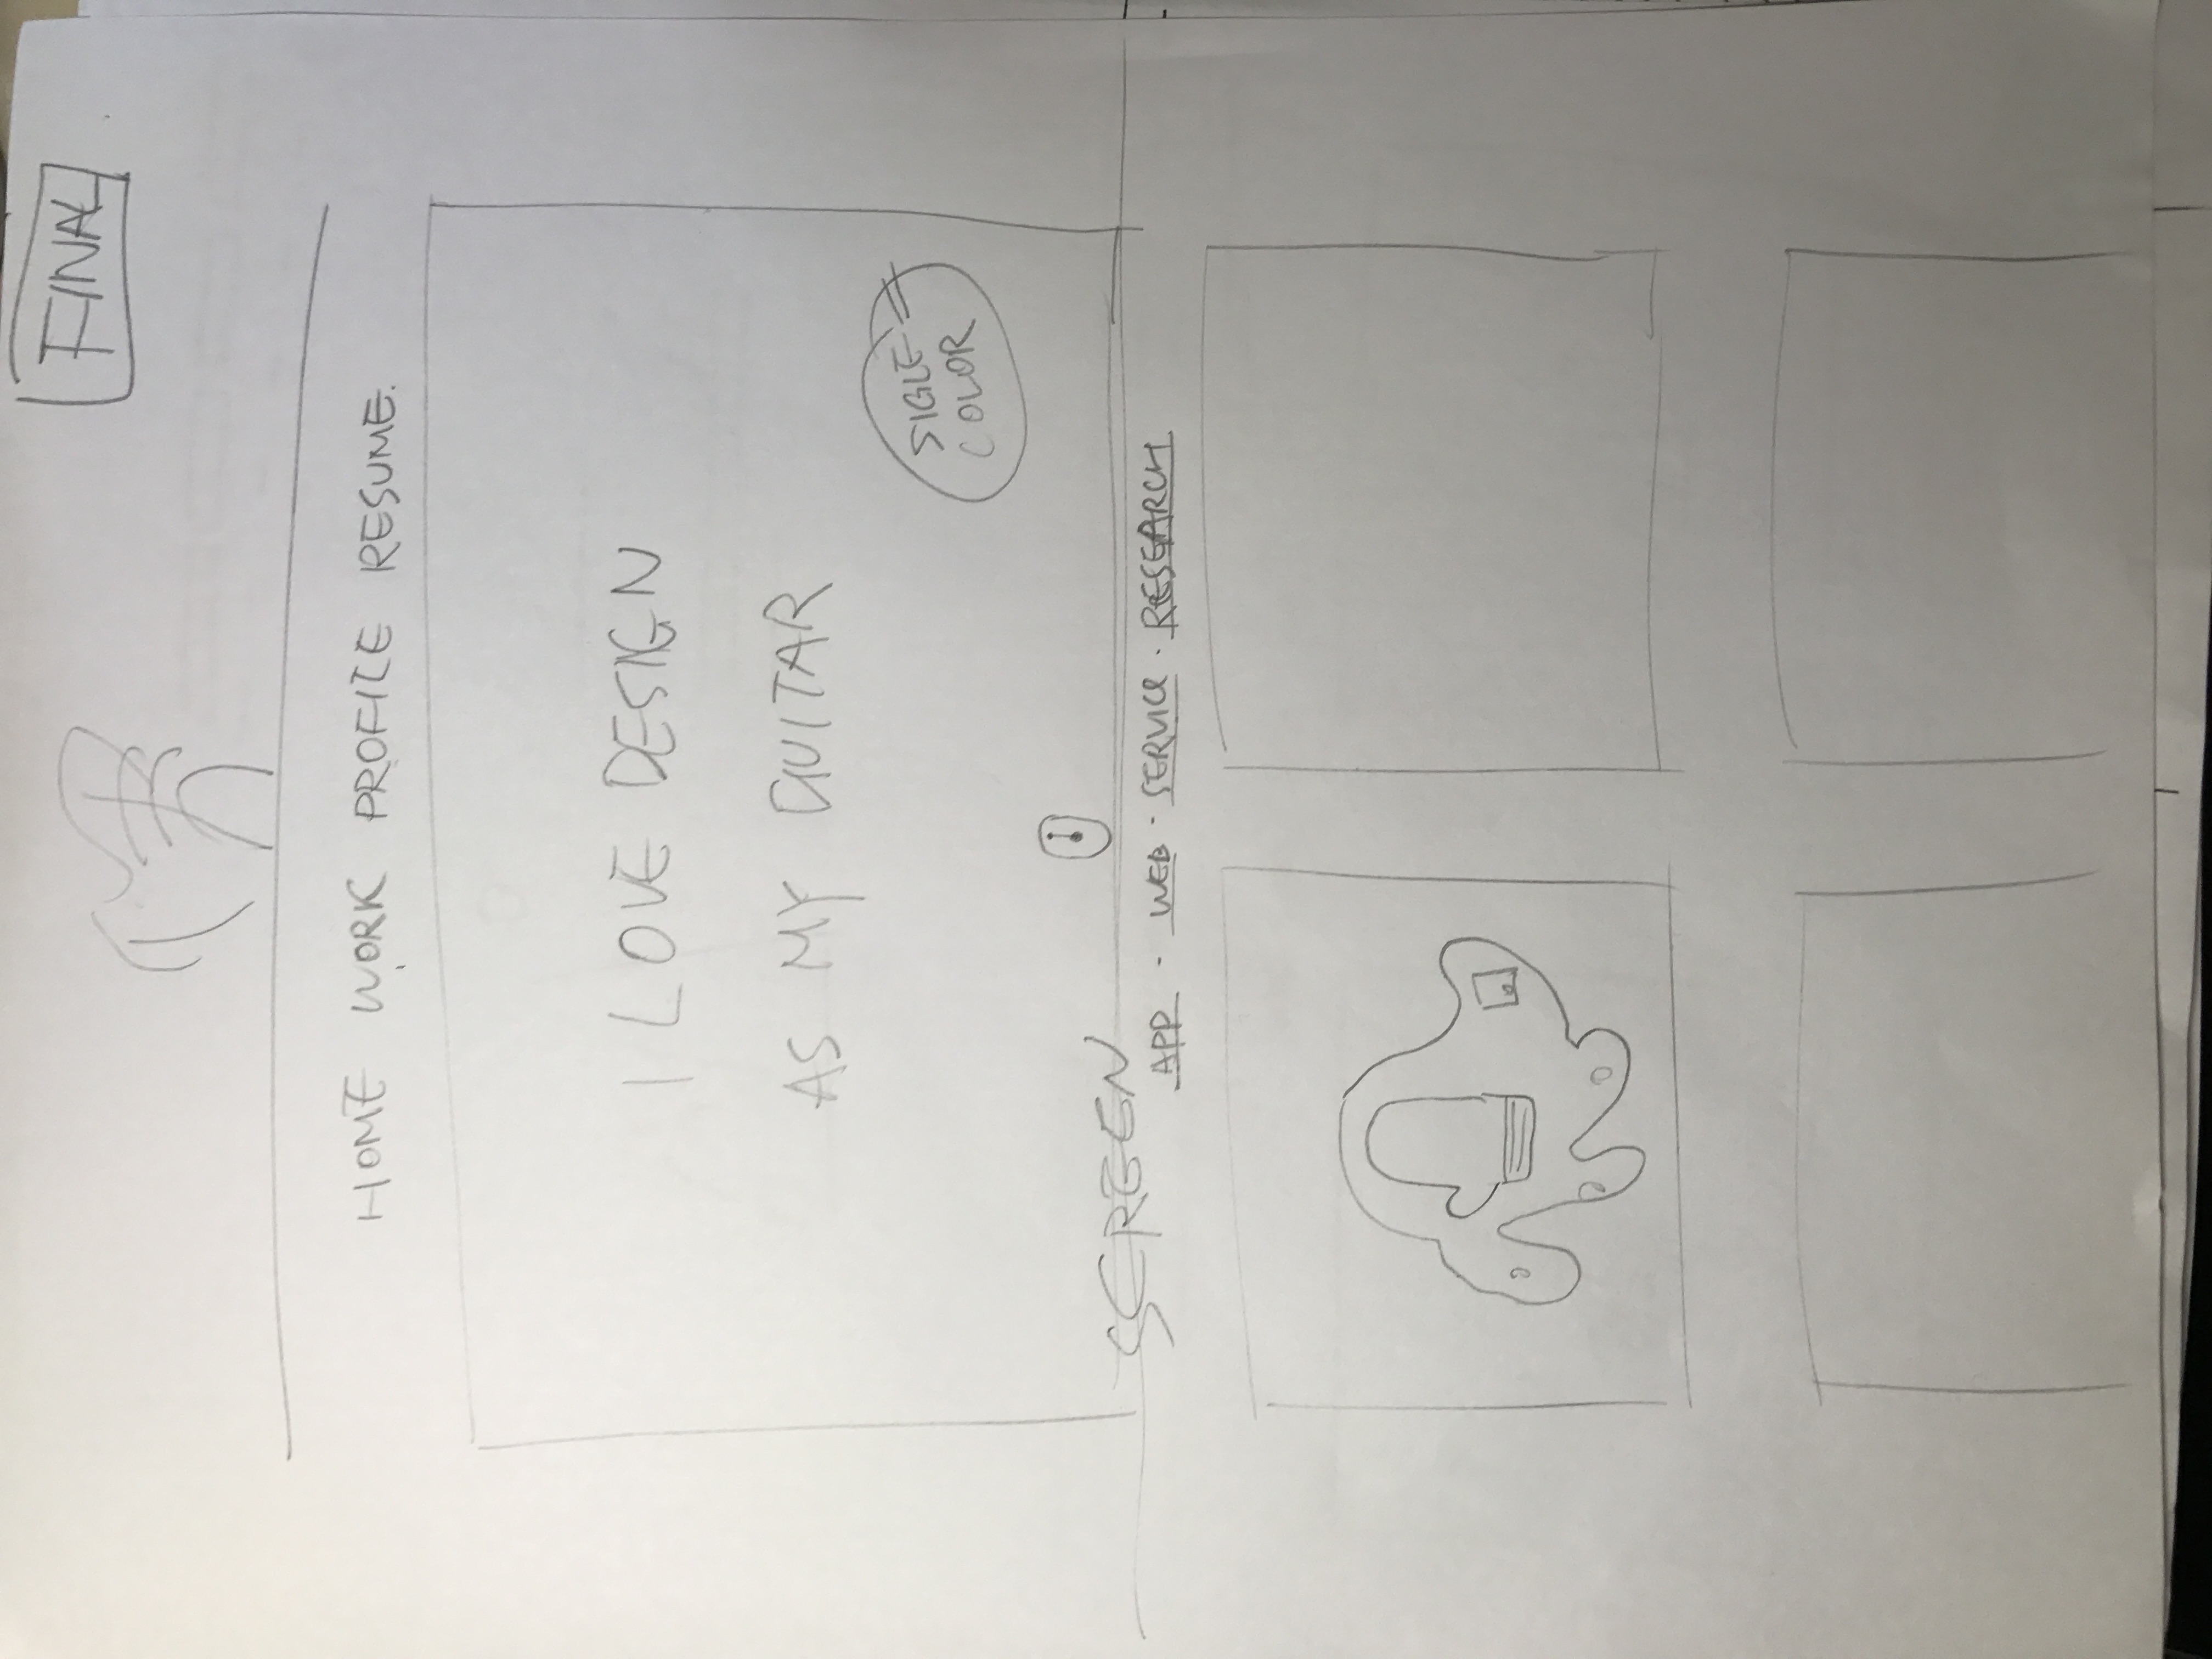 FINAL
HOME WORK PROFILE RESUME.
I LOVE DESIGN
AS MY GUITAR
SIGLE
COLOR
SCREEN
APP · WEB · SERVICE · RESEARCH